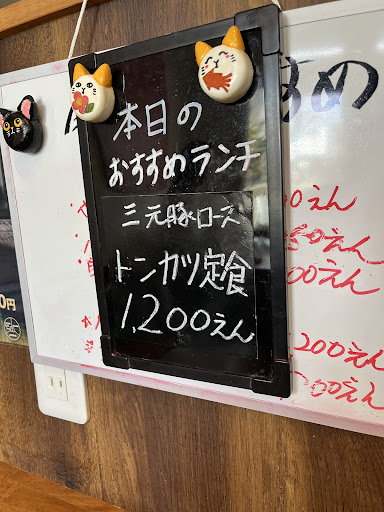 本日の
おすすめランチ
三元豚ロース
トンカツ定食
1,200えん
すめ
00えん
50えん
00えん
,200えん
,200えん
0円